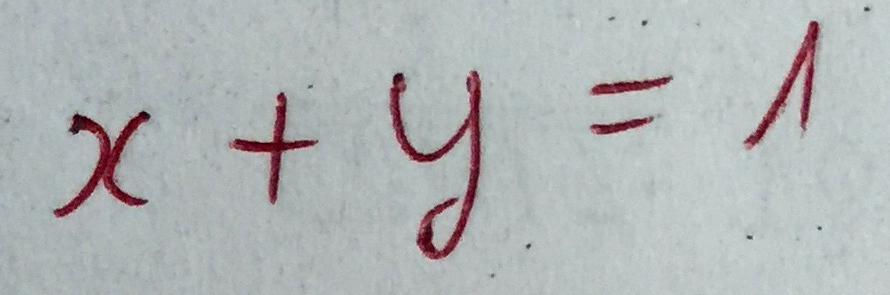 x + y = 1